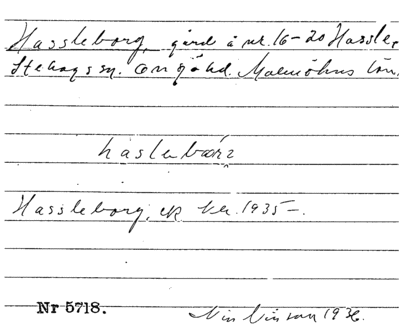 Hassleborg, gård å nr. 16-20 Hassle,
Stehags sn. Onsjö hd. Malmöhus län.
haslabærʒ
Hassleborg, ek ker. 1935-.
Nr 5718.
1936.